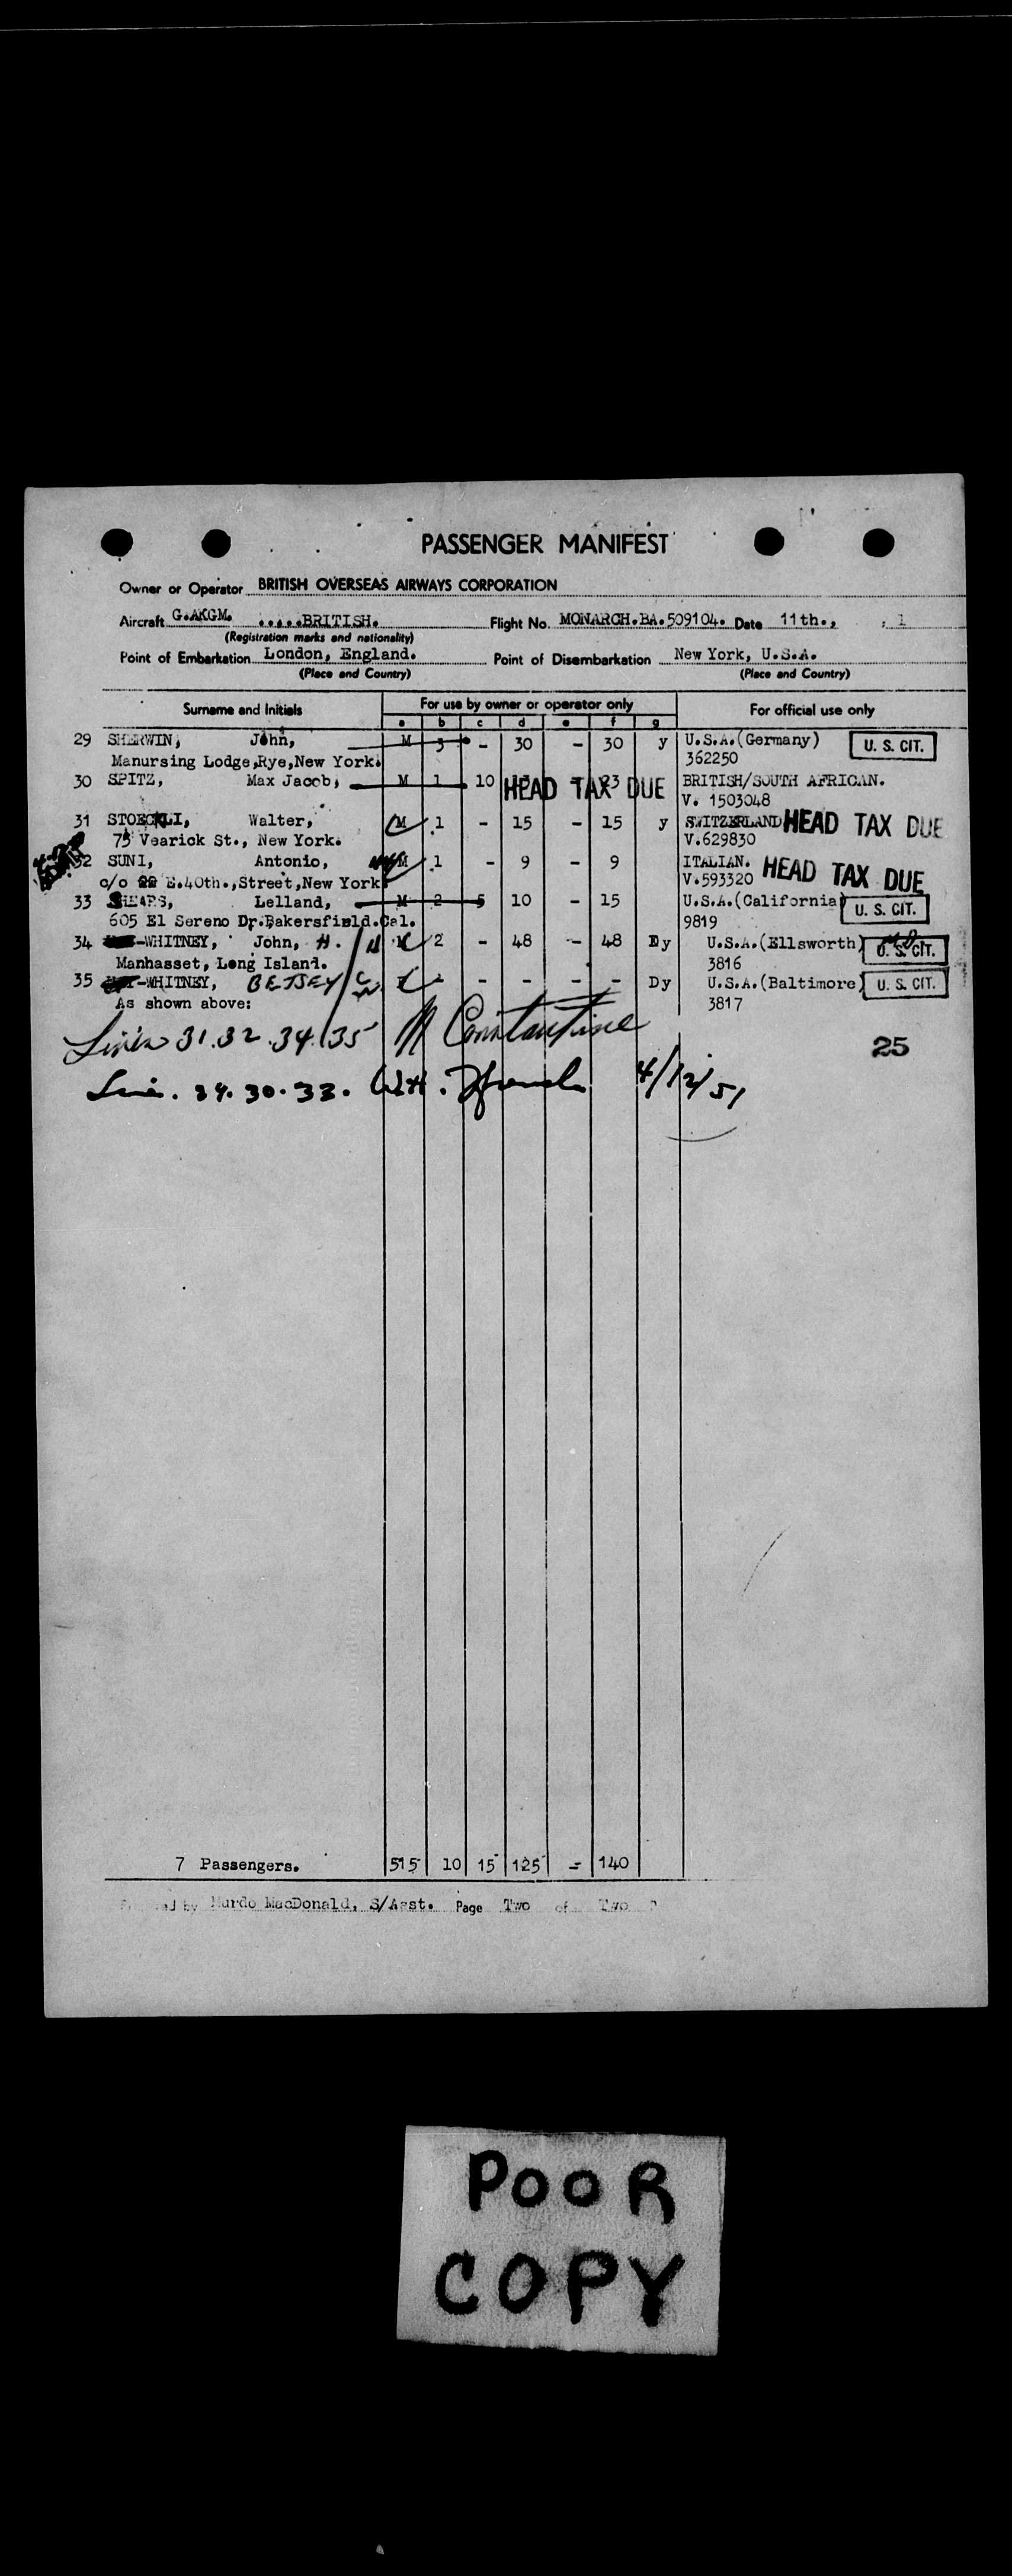 PASSENGER MANIFEST
Owner or Operator BRITISH OVERSEAS AIRWAYS CORPORATION
Aircraft G.AKGM. .....BRITISH. Flight No. MONARCH.BA.509104. Date 11th., , 1
(Registration marks and nationality)
Point of Embarkation London, England. Point of Disembarkation New York, U.S.A.
(Place and Country) (Place and Country)
Surname and Initials For use by owner or operator only For official use only
a b c d e f g
29 SHERWIN, John, M 3 - 30 - 30 y U.S.A.(Germany) U. S. CIT.
Manursing Lodge,Rye,New York. 362250
30 SPITZ, Max Jacob, M 1 10 HEAD TAX DUE BRITISH/SOUTH AFRICAN.
V. 1503048
31 STOECKLI, Walter, M 1 - 15 - 15 y SWITZERLAND HEAD TAX DUE
75 Vearick St., New York. V.629830
32 SUNI, Antonio, M 1 - 9 - 9 ITALIAN. HEAD TAX DUE
c/o 22 E.40th.,Street,New York. V.593320
33 SHEARS, Lelland, M 2 5 10 - 15 U.S.A.(California) U. S. CIT.
605 El Sereno Dr.Bakersfield.Cal. 9819
34 -WHITNEY, John, H. 2 - 48 - 48 Dy U.S.A.(Ellsworth) U. S. CIT.
Manhasset, Long Island. 3816
35 -WHITNEY, BETSEY C - - - - - Dy U.S.A.(Baltimore) U. S. CIT.
As shown above: 3817
Lines 31.32.34.35 M Constantine 25
Line. 29.30.33. 4/12/51
7 Passengers. 515 10 15 125 - 140
by Murdo MacDonald, S/Asst. Page Two of Two
POOR
COPY